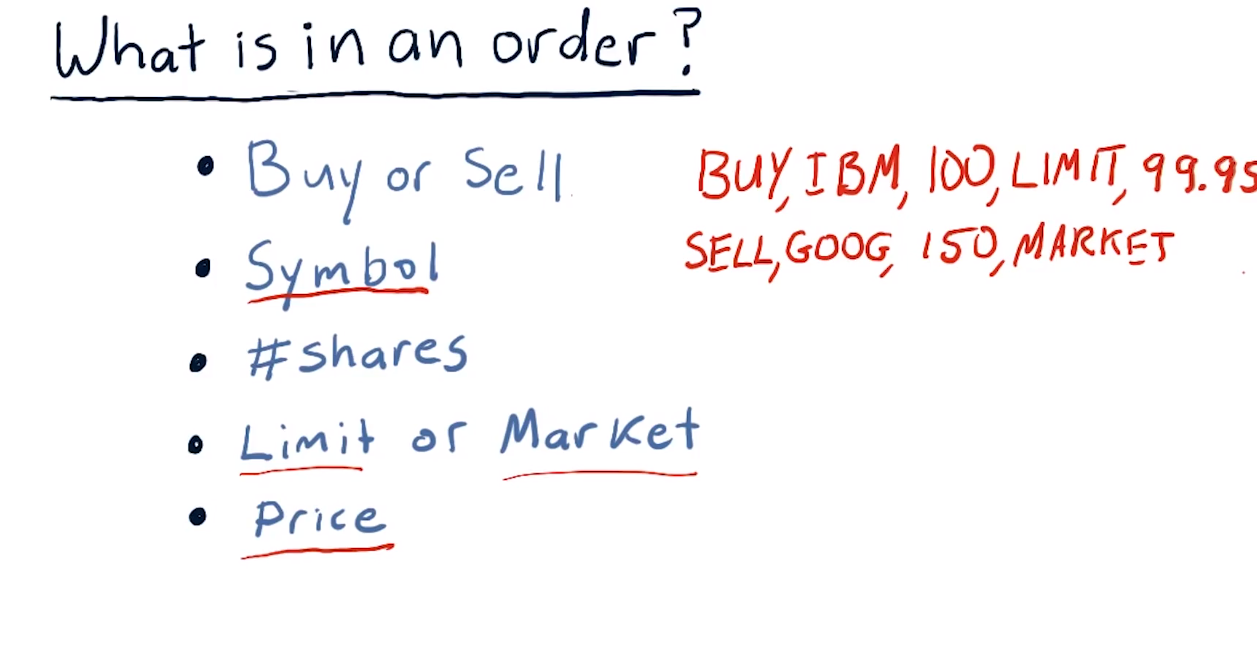 What is in an order?
• Buy or Sell
• Symbol
• #shares
• Limit or Market
• Price
BUY, IBM, 100, LIMIT, 99.95
SELL, GOOG, 150, MARKET